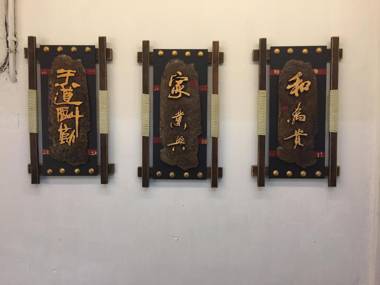 天道酬勤
家業興
和為貴